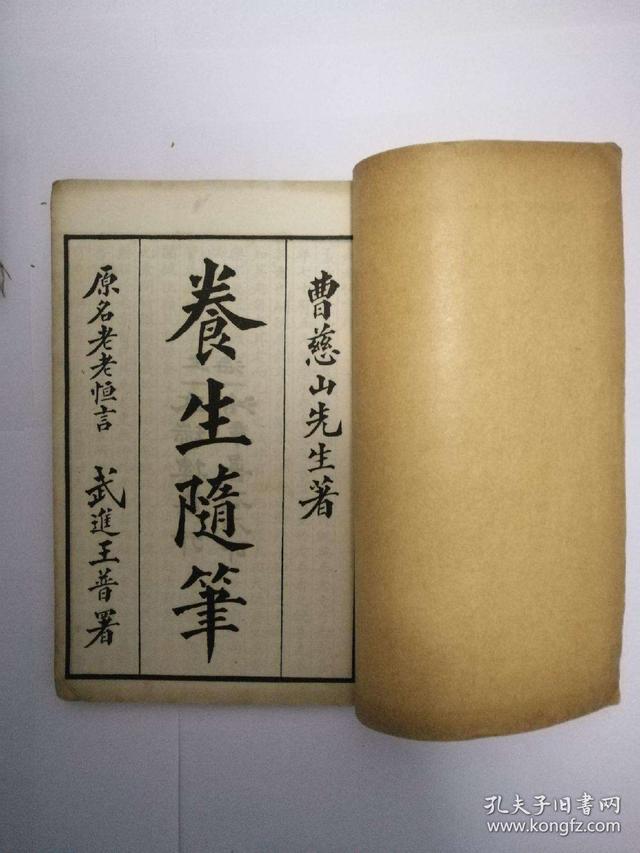 曹慈山先生著
養生隨筆
原名老老恒言 武進王普署
孔夫子旧书网
www.kongfz.com